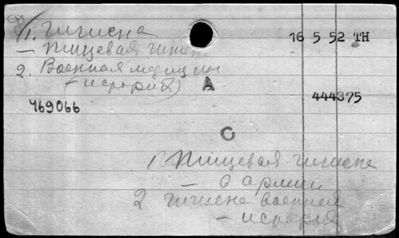 1. Гигиена
16 5 52 TH
— пищевая гигиена
2. Военная медицина
— история
A
444375
469066
C
1 Пищевая гигиена
— в армии
2 Гигиена военная
— история